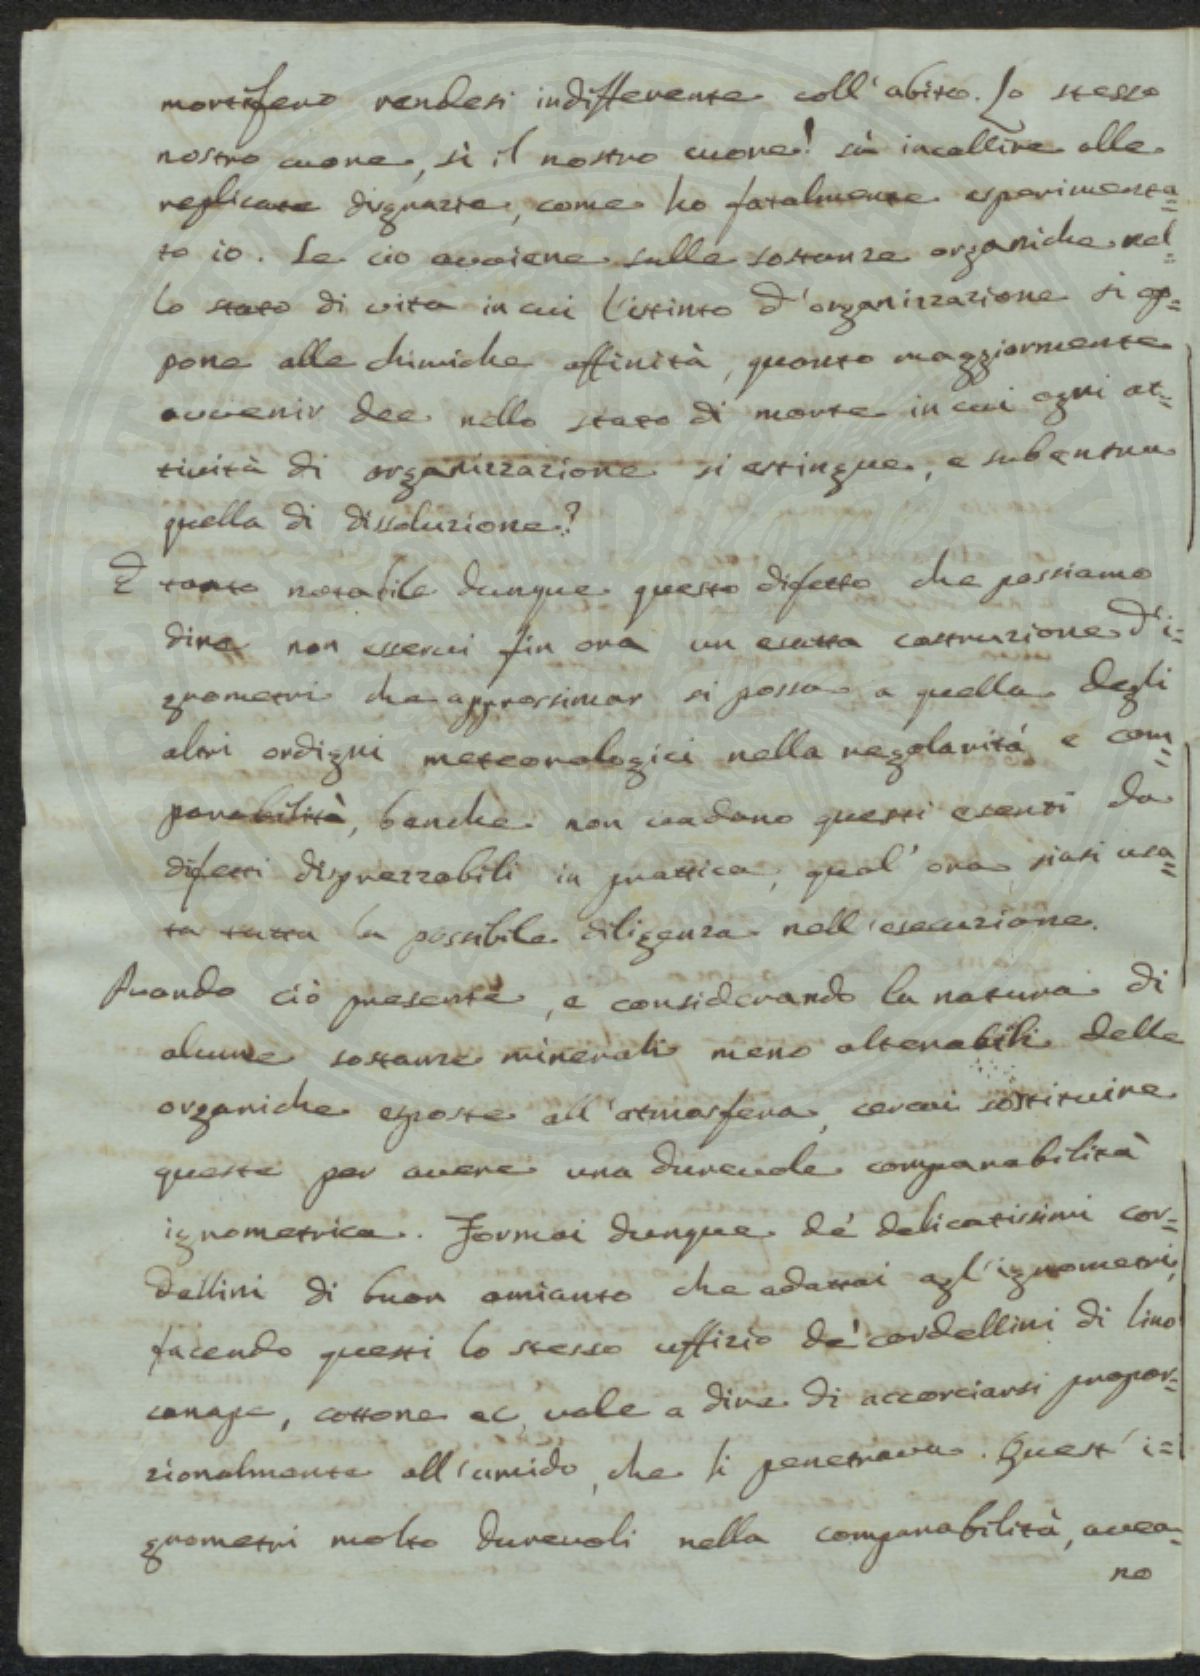 mortifero rendesi indifferente coll'abito. Lo stesso
nostro cuore, sì il nostro cuore! sà incallire alle
replicate disgrazie, come ho fatalmente esperimenta=
to io. Se ciò avviene sulle sostanze organiche nel=
lo stato di vita in cui l'istinto d'organizzazione si op=
pone alle chimiche affinità, quanto maggiormente
avvenir dee nello stato di morte in cui ogni at=
tività di organizzazione si estingue, e subentra
quella di dissoluzione?
È tanto notabile dunque questo difetto che possiamo
dire non esservi fin ora un esatta costruzione d'i=
grometri che approssimar si possa a quella degli
altri ordigni meteorologici nella regolarità e com=
parabilità, benche non vadano questi esenti da
difetti disprezzabili in prattica, qual'ora siasi usa=
ta tutta la possibile diligenza nell'esecuzione.
Avendo ciò presente, e considerando la natura di
alcune sostanze minerali meno alterabili delle
organiche esposte all'atmosfera, cercai sostituire
queste per avere una durevole comparabilità
igrometrica. Formai dunque de' delicatissimi cor=
dellini di buon amianto che adattai agl'igrometri,
facendo questi lo stesso uffizio de' cordellini di lino
canape, cottone ec, vale a dire di accorciarsi propor=
zionalmente all'umido, che li penetrava. Quest'i=
grometri molto durevoli nella comparabilità, avea-
no